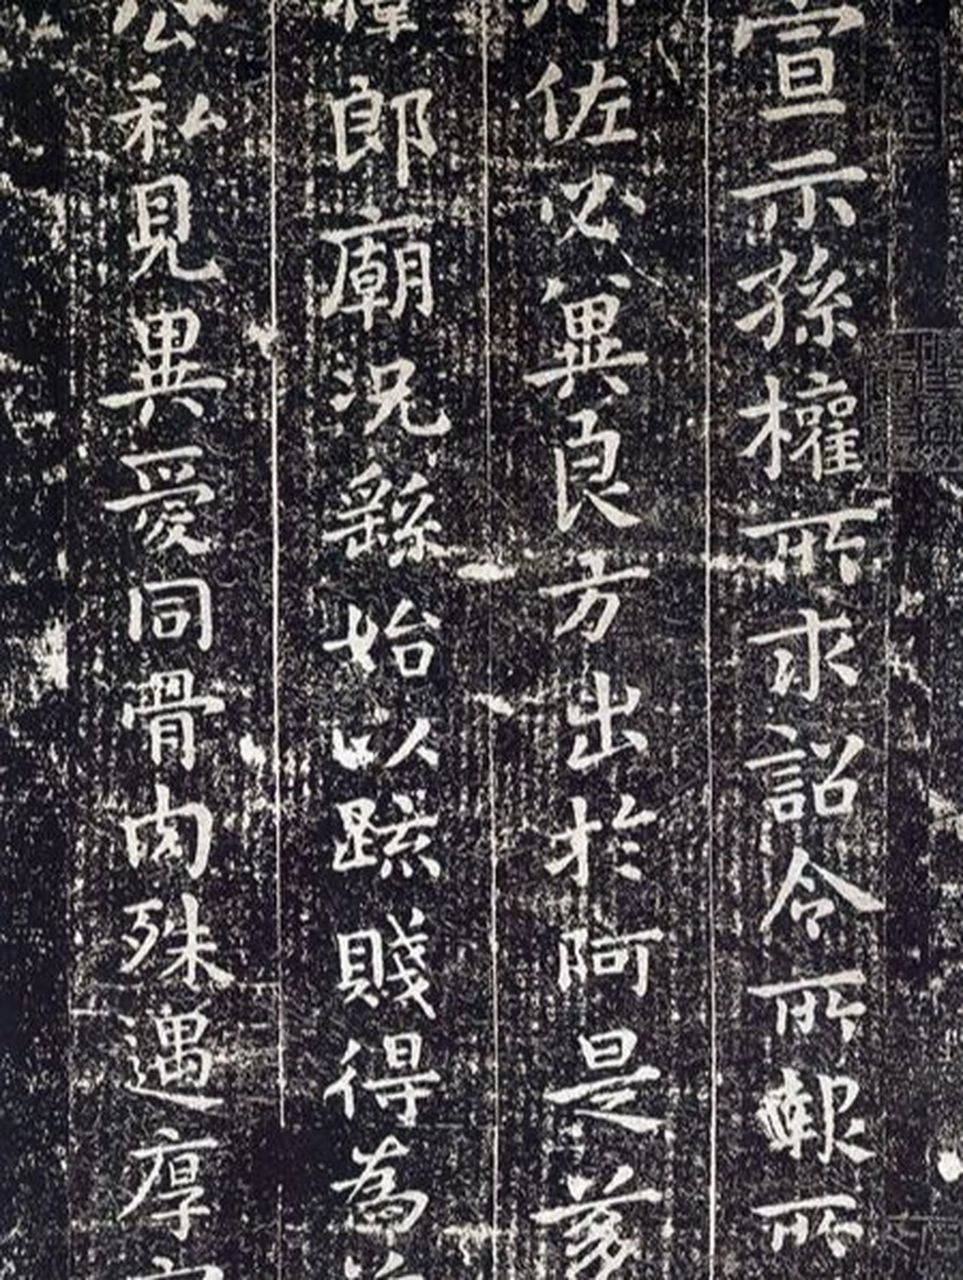 宣示孫權所求詔令所報所
佐必異良方出於阿是蒭
郎廟况繇始以踈賤得為
公私見異愛同骨肉殊遇厚